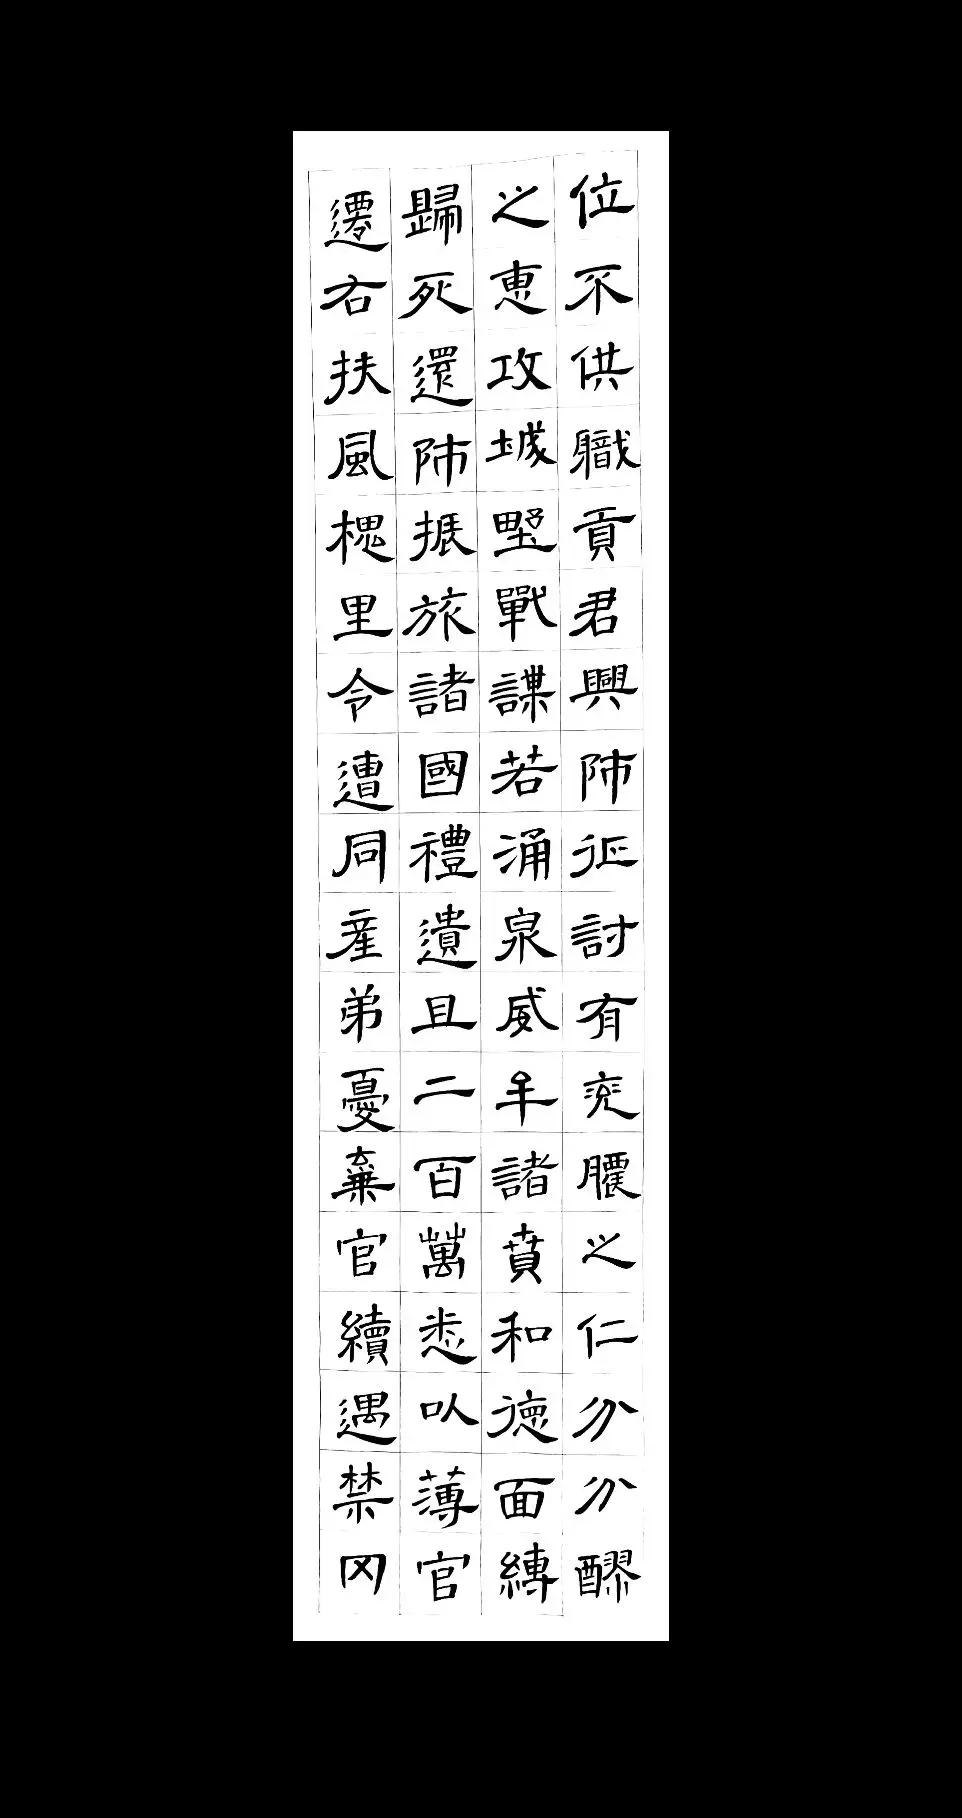 位不供職貢君興師征討有兗膿之仁分分醪
之恵攻城野戰謀若涌泉威牟諸賁和德面縛
歸死還師振旅諸國禮遺且二百萬悉以薄官
遷右扶風槐里令遭同産弟憂棄官續遇禁冈